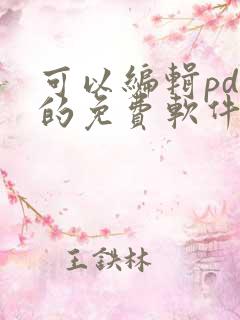 可以編輯pd
的免費軟件
王鉄林